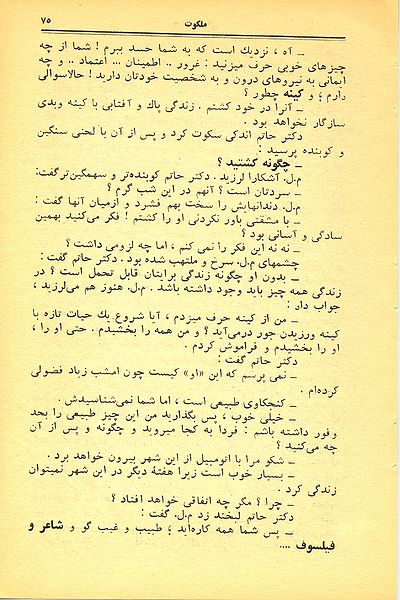 ملکوت
۷۵
ــ آه ، نزدیك است که به شما حسد ببرم ! شما از چه
چیزهای خوبی حرف میزنید : غرور .. اطمینان ... اعتماد .. و چه
ایمانی به نیروهای درون و به شخصیت خودتان دارید ! حالاسوالی
دارم ؛ و کینه چطور ؟
ــ آنرا در خود کشتم . زندگی پاك و آفتابی با کینه وبدی
سازگار نخواهد بود .
دکتر حاتم اندکی سکوت کرد و پس از آن با لحنی سنگین
و کوبنده پرسید :
ــ چگونه کشتید ؟
م.ل. آشکارا لرزید . دکتر حاتم کوبنده‌تر و سهمگین‌تر گفت:
ــ سردتان است ؟ آنهم در این شب گرم ؟
م.ل. دندانهایش را سخت بهم فشرد و ازمیان آنها گفت :
ــ با مشقتی باور نکردنی او را کشتم ! فکر می‌کنید بهمین
سادگی و آسانی بود ؟
ــ نه نه این فکر را نمی کنم ، اما چه لزومی داشت ؟
چشمهای م.ل. سرخ و ملتهب شده بود . دکتر حاتم گفت :
ــ بدون او چگونه زندگی برایتان قابل تحمل است ؟ در
زندگی همه چیز باید وجود داشته باشد . م.ل. هنوز هم می‌لرزید ،
جواب داد :
ــ من از کینه حرف میزدم ، آیا شروع یك حیات تازه با
کینه ورزیدن جور درمی‌آید ؟ و من همه را بخشیدم . حتی او را ،
او را بخشیدم و فراموش کردم .
دکتر حاتم گفت :
ــ نمی پرسم که این «او» کیست چون امشب زیاد فضولی
کرده‌ام .
ــ کنجکاوی طبیعی است ، اما شما نمی‌شناسیدش .
ــ خیلی خوب ، پس بگذارید من این چیز طبیعی را بحد
وفور داشته باشم : فردا به کجا میروید و چگونه و پس از آن
چه می‌کنید ؟
ــ شکو مرا با اتومبیل از این شهر بیرون خواهد برد .
ــ بسیار خوب است زیرا هفتهٔ دیگر در این شهر نمیتوان
زندگی کرد .
ــ چرا ؟ مگر چه اتفاقی خواهد افتاد ؟
دکتر حاتم لبخند زد م.ل. گفت :
ــ پس شما همه کاره‌اید ؛ طبیب و غیب گو و شاعر و
فیلسوف ....